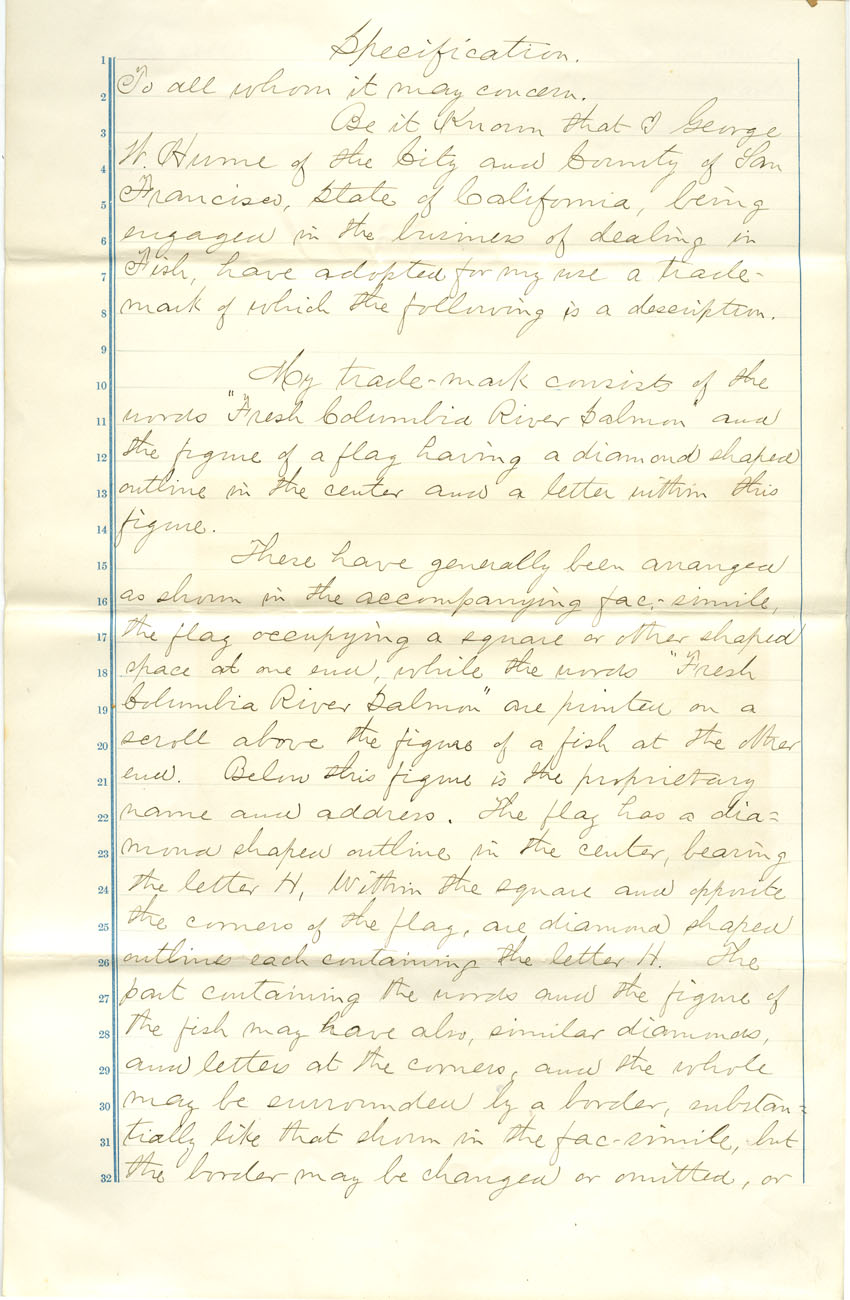 Specification.
1 To all whom it may concern.
2
3 Be it Known that I George
4 W. Hume of the City and County of San
5 Francisco, State of California, being
6 engaged in the business of dealing in
7 Fish, have adopted for my use a trade-
8 mark of which the following is a description.
9
10 My trade-mark consists of the
11 words "Fresh Columbia River Salmon" and
12 the figure of a flag having a diamond shaped
13 outline in the center and a letter within this
14 figure.
15 These have generally been arranged
16 as shown in the accompanying fac-simile,
17 the flag occupying a square or other shaped
18 space at one end, while the words "Fresh
19 Columbia River Salmon" are printed on a
20 scroll above the figure of a fish at the other
21 end. Below this figure is the proprietary
22 name and address. The flag has a dia=
23 mond shaped outline in the center, bearing
24 the letter H, Within the square and opposite
25 the corners of the flag, are diamond shaped
26 outlines each containing the letter H. The
27 part containing the words and the figure of
28 the fish may have also, similar diamonds,
29 and letters at the corners, and the whole
30 may be surrounded by a border, substan=
31 tially like that shown in the fac-simile, but
32 the border may be changed or omitted, or